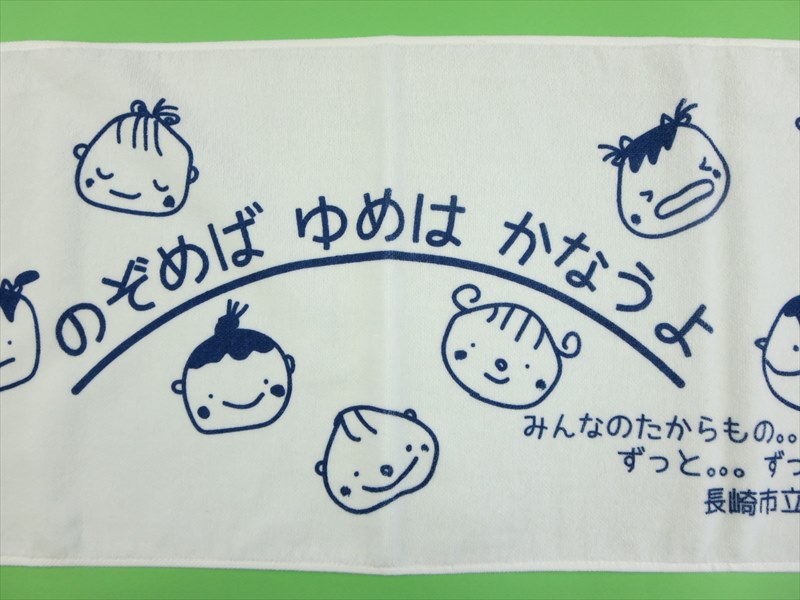 のぞめば ゆめは かなうよ
みんなのたからもの。。
ずっと。。。ずっ
長崎市立